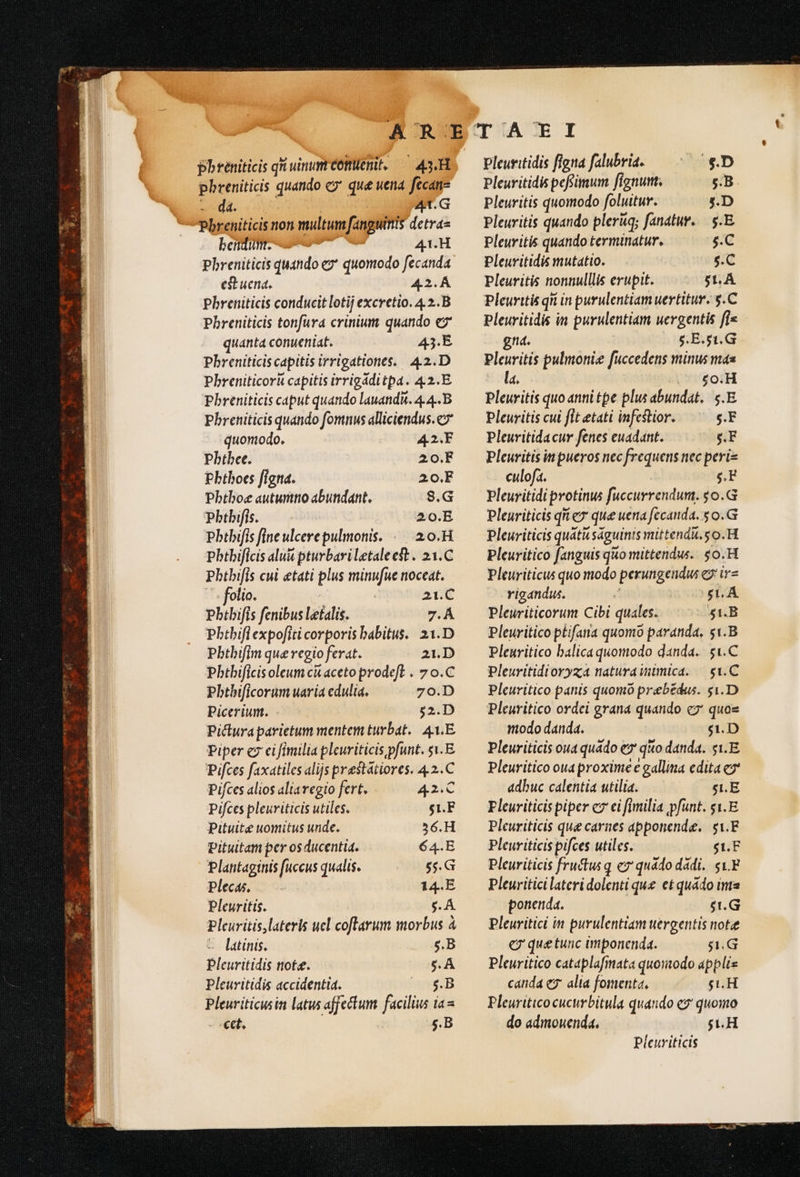 ARETAEI
phreniticis qñ uinum conuenit. 43.H
phreniticis quando & quæ uena secan=
da. 41.G
Phreniticis non multum sanguinis detra=
hendum. 41.H
Phreniticis quando & quomodo secanda
est uena. 42.A
Phreniticis conducit lotij excretio. 42.B
Phreniticis tonsura crinium quando &
quanta conueniat. 43.E
Phreniticis capitis irrigationes. 42.D
Phreniticorū capitis irrigādi tpa. 42.E
Phreniticis caput quando lauandū. 44.B
Phreniticis quando somnus alliciendus. &
quomodo. 42.F
Phthæe. 20.F
Phthoes signa. 20.F
Phthoæ autumno abundant. 8.G
Phthisis. 20.E
Phthisis sine ulcere pulmonis. 20.H
Phthisicis aluū pturbari letale est. 21.C
Phthisis cui ætati plus minusue noceat.
folio. 21.C
Phthisis senibus letalis. 7.A
Phthisi expositi corporis habitus. 21.D
Phthisim quæ regio ferat. 21.D
Phthisicis oleum cū aceto prodest. 70.C
Phthisicorum uaria edulia. 70.D
Picerium. 52.D
Pictura parietum mentem turbat. 41.E
Piper & ei similia pleuriticis ꝓsunt. 51.E
Pisces saxatiles alijs præstātiores. 42.C
Pisces alios alia regio fert. 42.C
Pisces pleuriticis utiles. 51.F
Pituitæ uomitus unde. 36.H
Pituitam per os ducentia. 64.E
Plantaginis succus qualis. 55.G
Plecas. 14.E
Pleuritis. 5.A
Pleuritis, lateris uel costarum morbus à
latinis. 5.B
Pleuritidis notæ. 5.A
Pleuritidis accidentia. 5.B
Pleuriticus in latus affectum facilius ia=
cet. 5.B
Pleuritidis signa salubria. 5.D
Pleuritidis pessimum signum. 5.B
Pleuritis quomodo soluitur. 5.D
Pleuritis quando plerūq; sanatur. 5.E
Pleuritis quando terminatur. 5.C
Pleuritidis mutatio. 5.C
Pleuritis nonnulllis erupit. 51.A
Pleuritis qñ in purulentiam uertitur. 5.C
Pleuritidis in purulentiam uergentis si=
gna. 5.E.51.G
Pleuritis pulmoniæ succedens minus ma=
la. 50.H
Pleuritis quo anni tpe plus abundat. 5.E
Pleuritis cui sit ætati infestior. 5.F
Pleuritida cur senes euadant. 5.F
Pleuritis in pueros nec frequens nec peri=
culosa. 5.F
Pleuritidi protinus succurrendum. 50.G
Pleuriticis qñ & quæ uena secanda. 50.G
Pleuriticis quātū sāguinis mittendū. 50.H
Pleuritico sanguis quō mittendus. 50.H
Pleuriticus quo modo perungendus & ir=
rigandus. 51.A
Pleuriticorum Cibi quales. 51.B
Pleuritico ptisana quomō paranda. 51.B
Pleuritico halica quomodo danda. 51.C
Pleuritidi oryza natura inimica. 51.C
Pleuritico panis quomō præbēdus. 51.D
Pleuritico ordei grana quando & quo=
modo danda. 51.D
Pleuriticis oua quādo & quō danda. 51.E
Pleuritico oua proxime è gallina edita &
adhuc calentia utilia. 51.E
Pleuriticis piper & ei similia ꝓsunt. 51.E
Pleuriticis quæ carnes apponendæ. 51.F
Pleuriticis pisces utiles. 51.F
Pleuriticis fructus q & quādo dādi. 51.F
Pleuritici lateri dolenti quæ et quādo im=
ponenda. 51.G
Pleuritici in purulentiam uergentis notæ
& quæ tunc imponenda. 51.G
Pleuritico cataplasmata quomodo appli=
canda & alia fomenta. 51.H
Pleuritico cucurbitula quando & quomo
do admouenda. 51.H
Pleuriticis